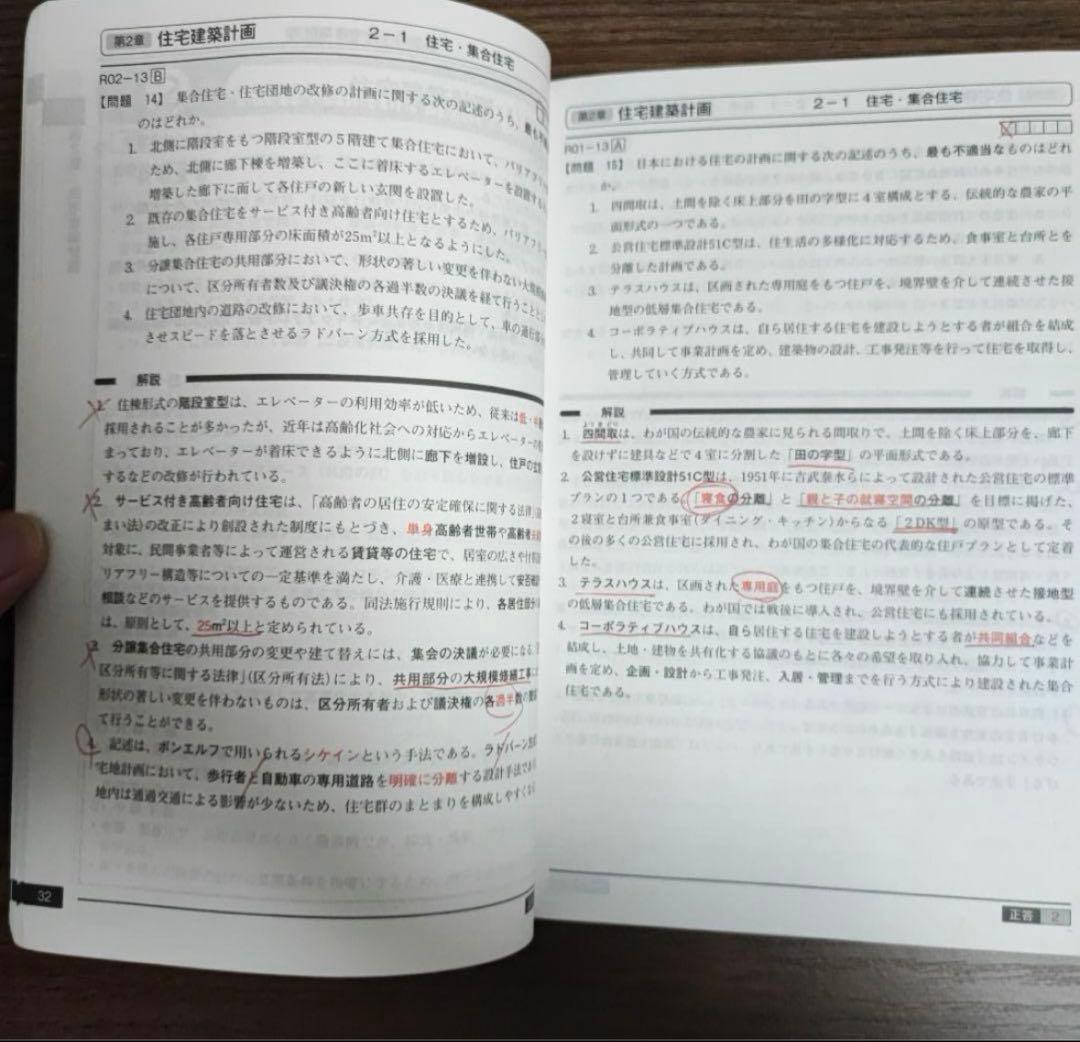 第2章 住宅建築計画 2－1 住宅・集合住宅
R02−13 B
【問題 14】 集合住宅・住宅団地の改修の計画に関する次の記述のうち、最も不
のはどれか。
1. 北側に階段室をもつ階段室型の5階建て集合住宅において、バリアフリー
ため、北側に廊下棟を増築し、ここに着床するエレベーターを設置する
増築した廊下に面して各住戸の新しい玄関を設置した。
2. 既存の集合住宅をサービス付き高齢者向け住宅とするため、バリアフリー
施し、各住戸専用部分の床面積が25m²以上となるようにした。
3. 分譲集合住宅の共用部分において、形状の著しい変更を伴わない大規模
について、区分所有者数及び議決権の各過半数の決議を経て行うこととし
4. 住宅団地内の道路の改修において、歩車共存を目的として、車の通行部
させスピードを落とさせるラドバーン方式を採用した。
解説
1. 住棟形式の階段室型は、エレベーターの利用効率が低いため、従来は低・
採用されることが多かったが、近年は高齢化社会への対応からエレベーターの
まっており、エレベーターが着床できるように北側に廊下を増設し、住戸の玄
するなどの改修が行われている。
2. サービス付き高齢者向け住宅は、「高齢者の居住の安定確保に関する法律」
まい法)の改正により創設された制度にもとづき、単身高齢者世帯や高齢者
対象に、民間事業者等によって運営される賃貸等の住宅で、居室の広さや
リアフリー構造等についての一定基準を満たし、介護・医療と連携して安否
相談などのサービスを提供するものである。同法施行規則により、各居住部分
は、原則として、25m²以上と定められている。
3. 分譲集合住宅の共用部分の変更や建て替えには、集会の決議が必要になる。
区分所有等に関する法律」(区分所有法)により、共用部分の大規模修繕工事
形状の著しい変更を伴わないものは、区分所有者および議決権の各過半数の
て行うことができる。
4. 記述は、ボンエルフで用いられるシケインという手法である。ラドバーン方
宅地計画において、歩行者と自動車の専用道路を明確に分離する設計手法で
地内は通過交通による影響が少ないため、住宅群のまとまりを構成しやすくな
32
第2章 住宅建築計画 2－1 住宅・集合住宅
R01−13 A
【問題 15】 日本における住宅の計画に関する次の記述のうち、最も不適当なものはどれ
か。
1. 四間取は、土間を除く床上部分を田の字型に4室構成とする、伝統的な農家の平
面形式の一つである。
2. 公営住宅標準設計51C型は、住生活の多様化に対応するため、食事室と台所とを
分離した計画である。
3. テラスハウスは、区画された専用庭をもつ住戸を、境界壁を介して連続させた接
地型の低層集合住宅である。
4. コーポラティブハウスは、自ら居住する住宅を建設しようとする者が組合を結成
し、共同して事業計画を定め、建築物の設計、工事発注等を行って住宅を取得し、
管理していく方式である。
解説
よつまどり
1. 四間取は、わが国の伝統的な農家に見られる間取りで、土間を除く床上部分を、廊下
を設けずに建具などで4室に分割した「田の字型」の平面形式である。
2. 公営住宅標準設計51C型は、1951年に吉武泰水らによって設計された公営住宅の標準
プランの1つである。「寝食の分離」と「親と子の就寝空間の分離」を目標に掲げた、
2寝室と台所兼食事室(ダイニング・キッチン)からなる「2DK型」の原型である。そ
の後の多くの公営住宅に採用され、わが国の集合住宅の代表的な住戸プランとして定着
した。
3. テラスハウスは、区画された専用庭をもつ住戸を、境界壁を介して連続させた接地型
の低層集合住宅である。わが国では戦後に導入され、公営住宅にも採用されている。
4. コーポラティブハウスは、自ら居住する住宅を建設しようとする者が共同組合などを
結成し、土地・建物を共有化する協議のもとに各々の希望を取り入れ、協力して事業計
画を定め、企画・設計から工事発注、入居・管理までを行う方式により建設された集合
住宅である。
正答 2